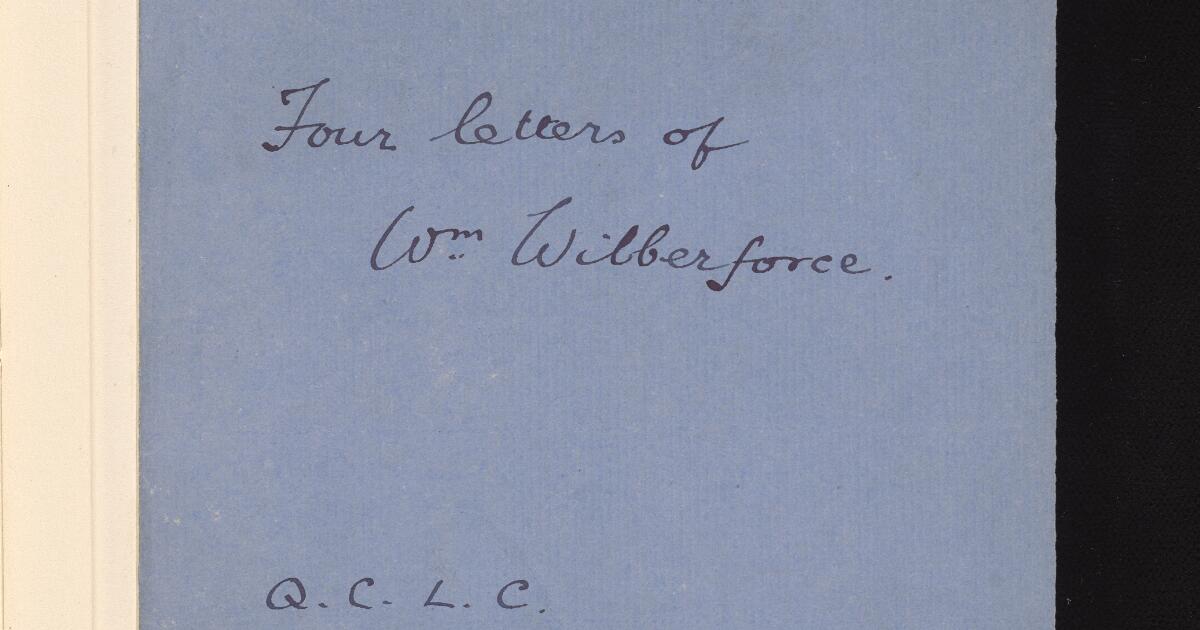 Four letters of
Wm Wilberforce.
Q. C. L. C.